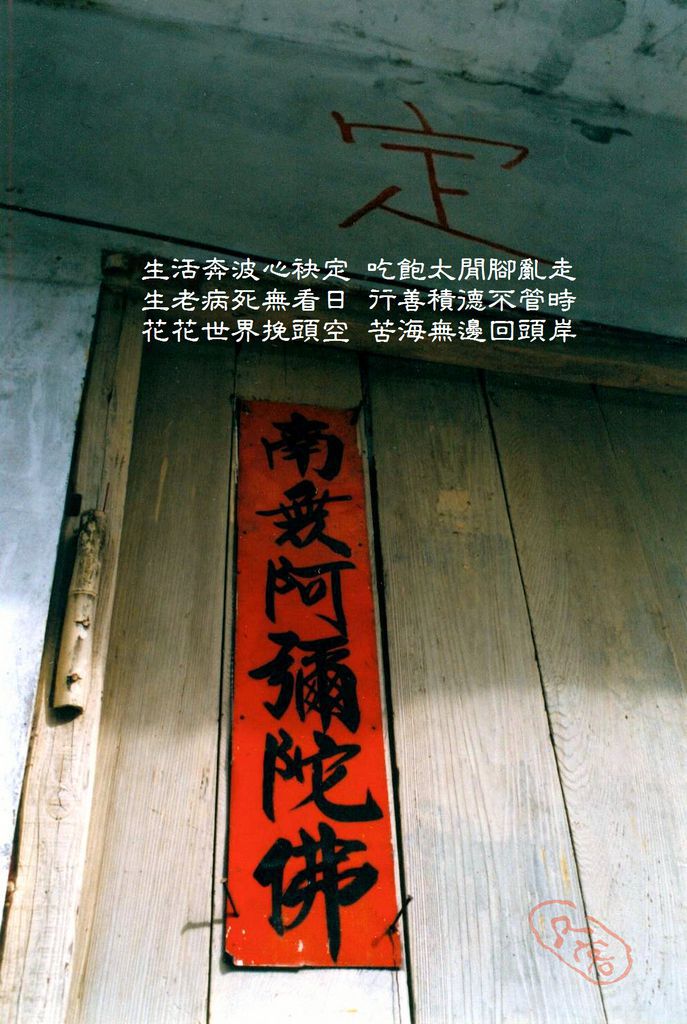 定
生活奔波心袂定 吃飽太閒腳亂走
生老病死無看日 行善積德不管時
花花世界挽頭空 苦海無邊回頭岸
南無阿彌陀佛